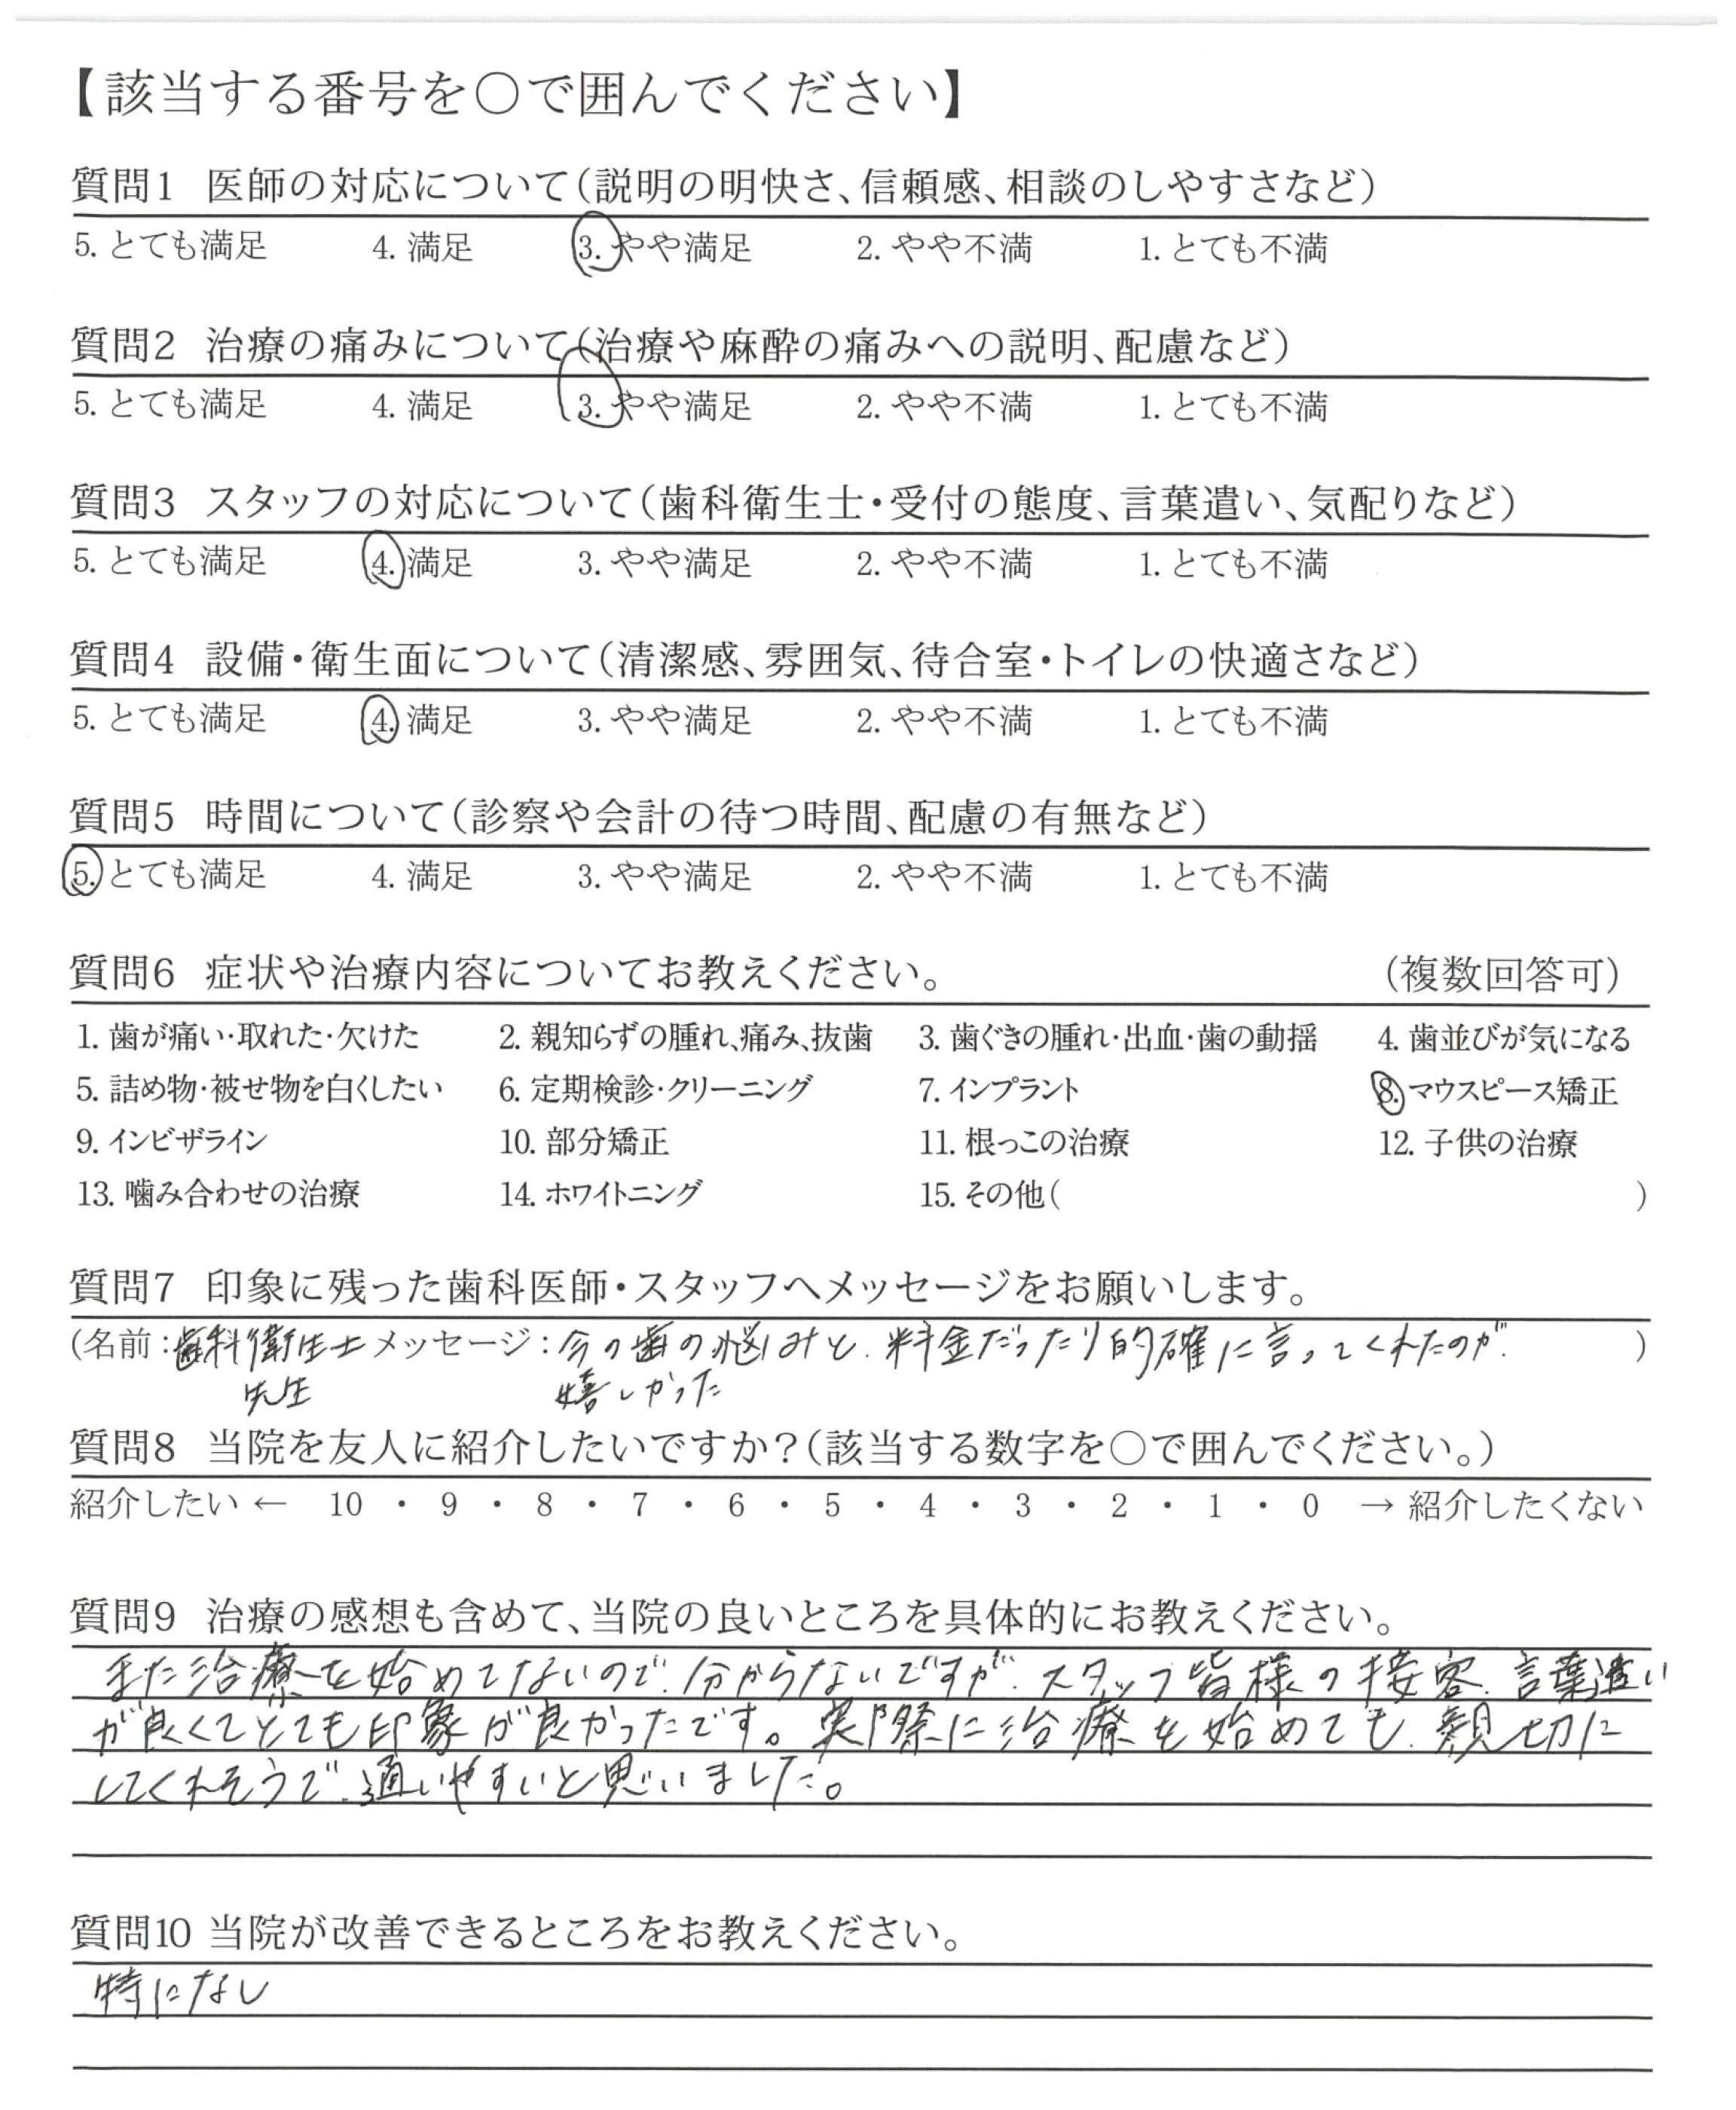 【該当する番号を○で囲んでください】
質問1 医師の対応について(説明の明快さ、信頼感、相談のしやすさなど)
5. とても満足 4. 満足 3. やや満足 2. やや不満 1. とても不満
質問2 治療の痛みについて(治療や麻酔の痛みへの説明、配慮など)
5. とても満足 4. 満足 3. やや満足 2. やや不満 1. とても不満
質問3 スタッフの対応について(歯科衛生士・受付の態度、言葉遣い、気配りなど)
5. とても満足 4. 満足 3. やや満足 2. やや不満 1. とても不満
質問4 設備・衛生面について(清潔感、雰囲気、待合室・トイレの快適さなど)
5. とても満足 4. 満足 3. やや満足 2. やや不満 1. とても不満
質問5 時間について(診察や会計の待つ時間、配慮の有無など)
5. とても満足 4. 満足 3. やや満足 2. やや不満 1. とても不満
質問6 症状や治療内容についてお教えください。 (複数回答可)
1. 歯が痛い・取れた・欠けた 2. 親知らずの腫れ、痛み、抜歯 3. 歯ぐきの腫れ・出血・歯の動揺 4. 歯並びが気になる
5. 詰め物・被せ物を白くしたい 6. 定期検診・クリーニング 7. インプラント 8. マウスピース矯正
9. インビザライン 10. 部分矯正 11. 根っこの治療 12. 子供の治療
13. 噛み合わせの治療 14. ホワイトニング 15. その他( )
質問7 印象に残った歯科医師・スタッフへメッセージをお願いします。
(名前:歯科衛生士 メッセージ:今の歯の悩みと、料金だったり的確に言ってくれたのが、 )
先生 嬉しかった
質問8 当院を友人に紹介したいですか?(該当する数字を○で囲んでください。)
紹介したい ← 10 ・ 9 ・ 8 ・ 7 ・ 6 ・ 5 ・ 4 ・ 3 ・ 2 ・ 1 ・ 0 → 紹介したくない
質問9 治療の感想も含めて、当院の良いところを具体的にお教えください。
まだ治療を始めてないので、分からないですが、スタッフ皆様の接客、言葉遣い
が良くてとても印象が良かったです。実際に治療を始めても、親切に
してくれそうで、通いやすいと思いました。
質問10 当院が改善できるところをお教えください。
特になし